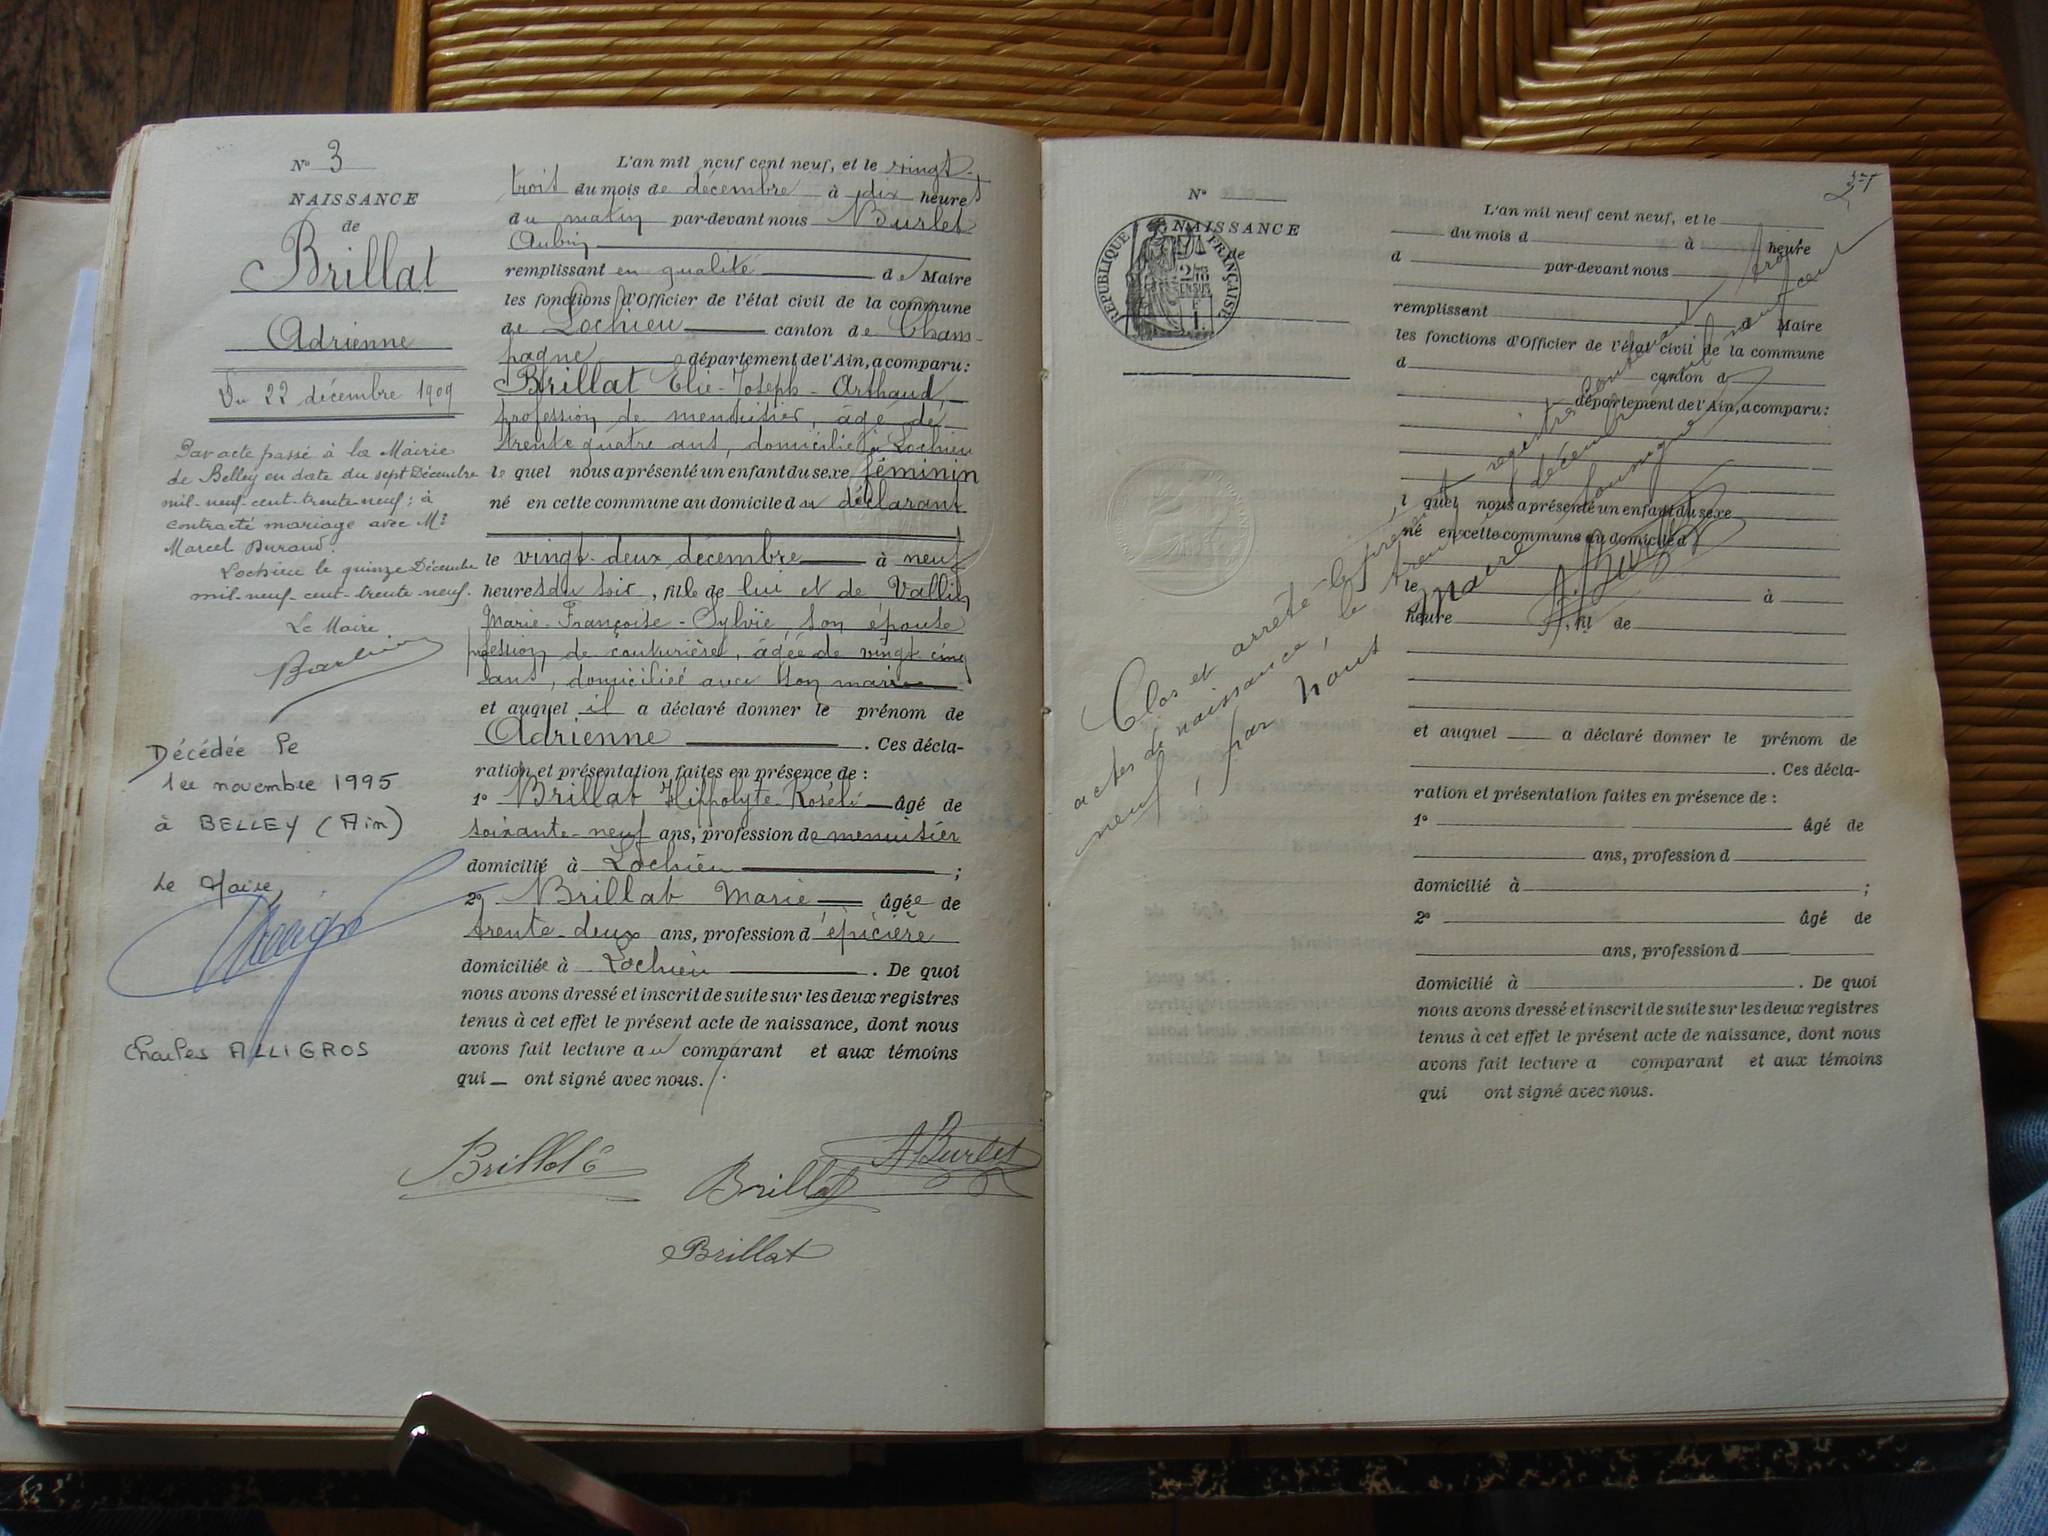 N° 3
NAISSANCE
de
Brillat
Adrienne
Du 22 décembre 1909
Par acte passé à la Mairie
de Belley en date du sept Décembre
mil-neuf-cent-trente-neuf; à
contracté mariage avec Mr
Marcel Durand.
Lochieu le quinze Décembre
mil-neuf-cent-trente-neuf.
Le Maire
Décédée le
1er novembre 1995
à BELLEY (Ain)
Le Maire
Charles ALLIGROS
L'an mil neuf cent neuf, et le vingt-
trois du mois de décembre à dix heures
du matin par-devant nous Burlet
Aubin
remplissant en qualité de Maire
les fonctions d'Officier de l'état civil de la commune
de Lochieu canton de Cham-
pagne département de l'Ain, a comparu:
Brillat Elie-Joseph-Arthaud,
profession de menuisier, âgé de
trente quatre ans, domicilié à Lochieu
le quel nous a présenté un enfant du sexe féminin
né en cette commune au domicile du déclarant
le vingt-deux décembre à neuf
heures du soir, fille de lui et de Vallin
Marie-Françoise-Sylvie, son épouse
profession de couturière, âgée de vingt cinq
ans, domiciliée avec son mari
et auquel il a déclaré donner le prénom de
Adrienne. Ces décla-
ration et présentation faites en présence de :
1° Brillat Hippolyte âgé de
soixante-neuf ans, profession de menuisier
domicilié à Lochieu ;
2° Brillat Marie âgée de
trente-deux ans, profession d'épicière
domiciliée à Lochieu. De quoi
nous avons dressé et inscrit de suite sur les deux registres
tenus à cet effet le présent acte de naissance, dont nous
avons fait lecture au comparant et aux témoins
qui ont signé avec nous.
Brillat
Brillat
A Burlet
Brillat
N°
NAISSANCE
de
REPUBLIQUE FRANÇAISE
L'an mil neuf cent neuf, et le
du mois d à heure
d par-devant nous
remplissant d Maire
les fonctions d'Officier de l'état civil de la commune
d canton d
département de l'Ain, a comparu:
l quel nous a présenté un enfant du sexe
né en cette commune au domicile d
le à
heure , fil de
et auquel a déclaré donner le prénom de
. Ces décla-
ration et présentation faites en présence de :
1° âgé de
ans, profession d
domicilié à ;
2° âgé de
ans, profession d
domicilié à . De quoi
nous avons dressé et inscrit de suite sur les deux registres
tenus à cet effet le présent acte de naissance, dont nous
avons fait lecture a comparant et aux témoins
qui ont signé avec nous.
Clos et arrêté le présent registre contenant trois
actes de naissance, le trente un décembre mil neuf cent
neuf, par nous Maire soussigné
A Burlet